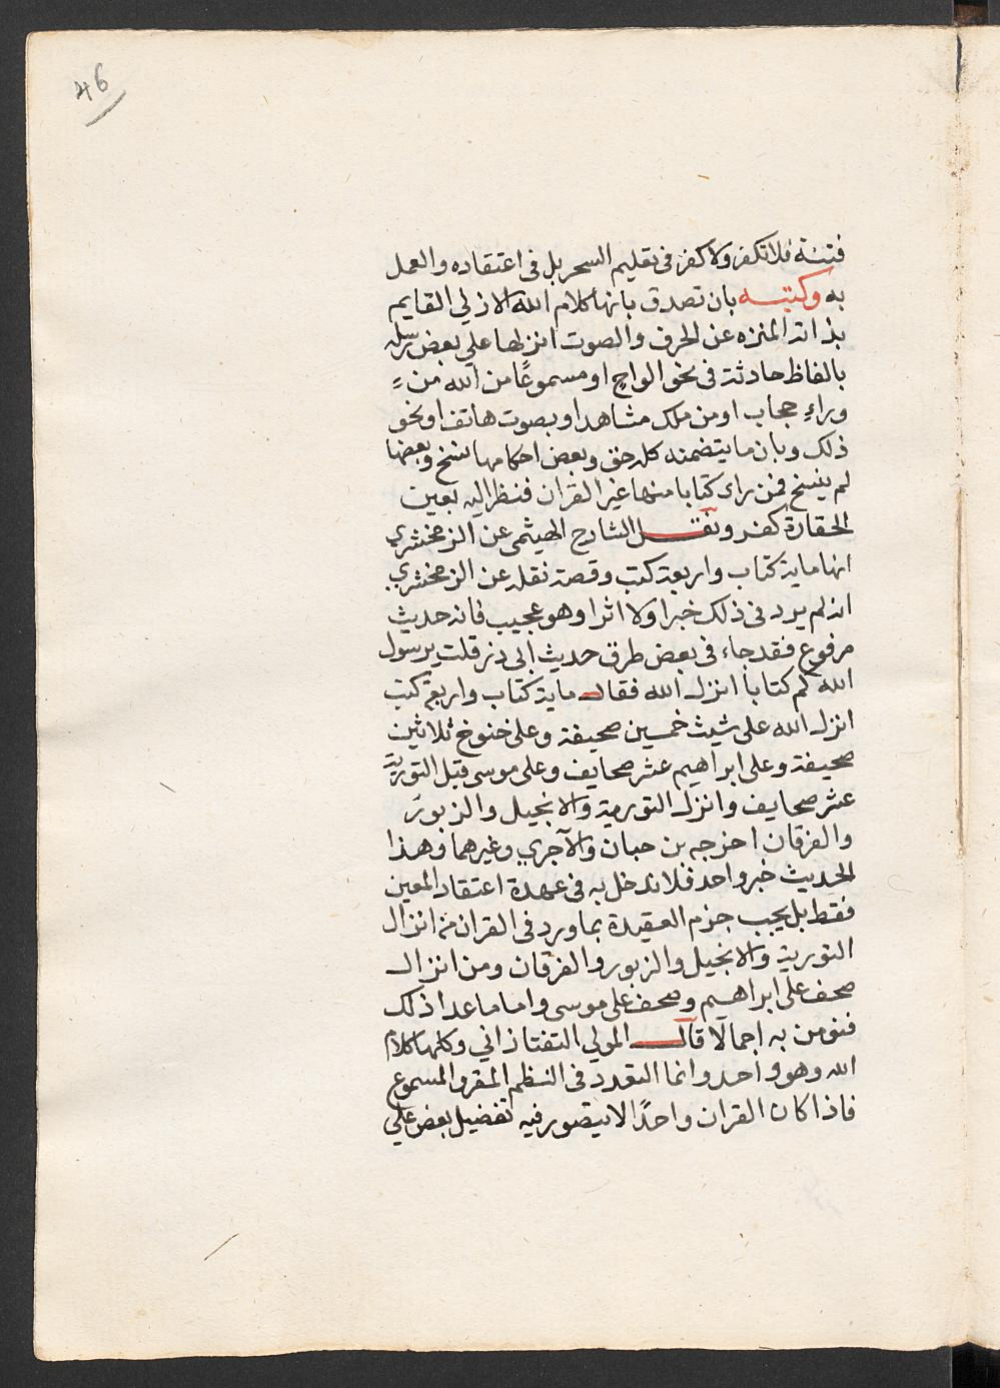 46
فتنة فلا تكفر ولا كفر فى تعليم السحر بل فى اعتقاده والعمل
به وكتبه بان تصدق بانها كلام الله الازلي القايم
بذاته المنزه عن الحرف والصوت انزلها علي بعض رسله
بالفاظ حادثة فى نحو الواح او مسموعًا من الله من
وراءِ حجاب او من ملك مشاهد او بصوت هاتف او نحو
ذلك وبان ما يتضمنه كله حق وبعض احكامها نسخ وبعضها
لم ينسخ فمن راى كتابا منها غير القران فنظر اليه بعين
الحقارة كفر ونقل الشارح الهيثمى عن الزمخشري
انها ماية كتاب واربعة كتب وقصة نقله عن الزمخشري
انه لم يرد فى ذلك خبرا ولا اثرا وهو عجيب فانه حديث
مرفوع فقد جاء فى بعض طرق حديث ابى ذر قلت يرسول
الله كم كتابا انزل الله فقال ماية كتاب واربعة كتب
انزل الله على شيث خمسين صحيفة وعلى خنوخ ثلاثين
صحيفة وعلى ابراهيم عشر صحايف وعلى موسى قبل التورية
عشر صحايف وانزل التورية والانجيل والزبور
والفرقان اخرجه بن حبان والآجري وغيرهما وهذا
الحديث خبر واحد فلا ندخل به فى عهدة اعتقاد المعين
فقط بل يجب جزم العقيدة بما ورد فى القران من انزال
التورية والانجيل والزبور والفرقان ومن انزال
صحف على ابراهيم وصحف على موسى واما ما عدا ذلك
فنومن به اجمالا قال المولي التفتازاني وكلها كلام
الله وهو واحد وانما التعدد فى النظم المقرو المسموع
فاذا كان القران واحدًا لا يتصور فيه تفضيل بعض علي